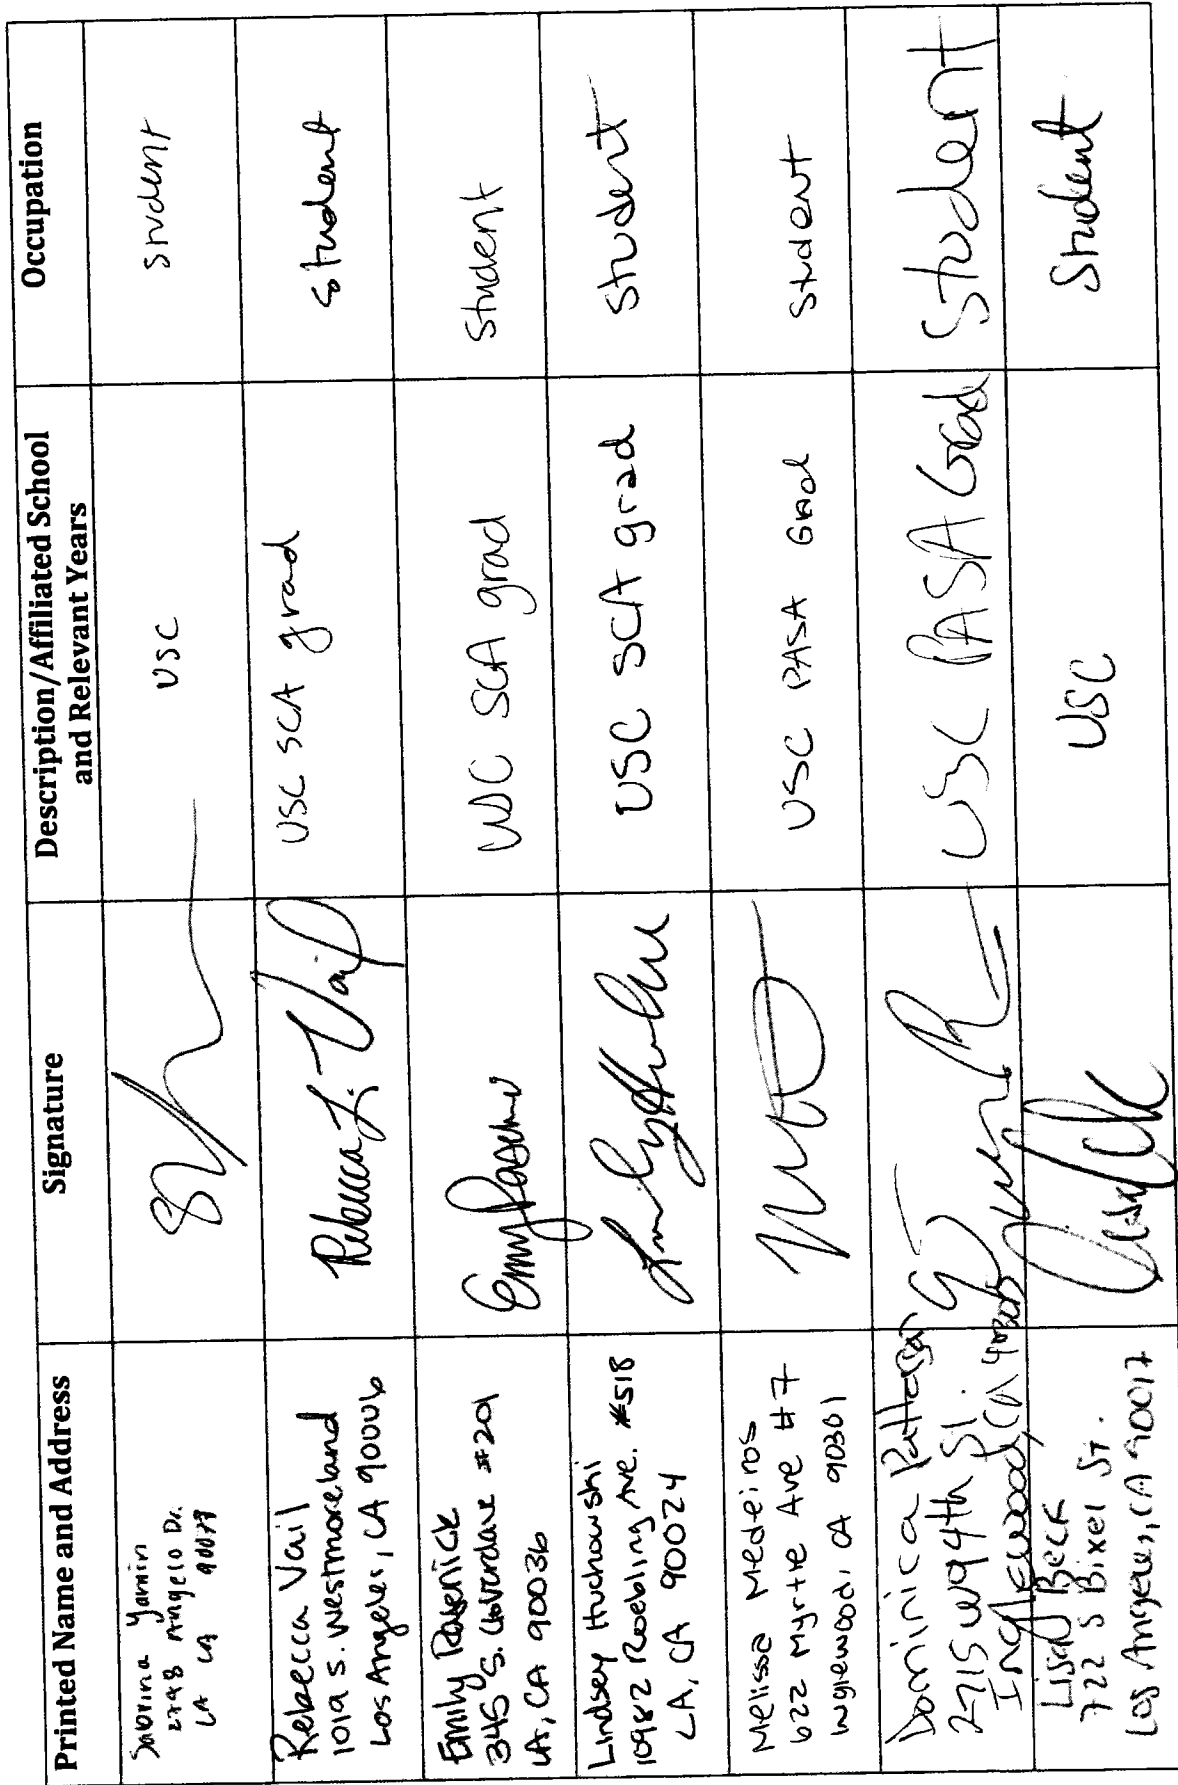 Printed Name and Address
Signature
Description/Affiliated School
and Relevant Years
Occupation
Sabrina Yamin
2748 Angelo Dr.
LA CA
USC
student
Rebecca Vail
1019 S. Westmoreland
Los Angeles, CA 90006
Rebecca L. Vail
USC SCA grad
student
Emily
345 S. Cloverdale #201
LA, CA 90036
Emily
USC SCA grad
Student
Lindsey Huchowski
10982 Roebling Ave. #518
LA, CA 90024
USC SCA grad
student
Melissa Medeiros
622 Myrtle Ave #7
Inglewood, CA 90301
USC PASA Grad
Student
Dominica Patterson
2715 W 94th St.
Inglewood, CA
USC PASA Grad
Student
Beck
722 S Bixel St.
Los Angeles, CA 90017
USC
Student